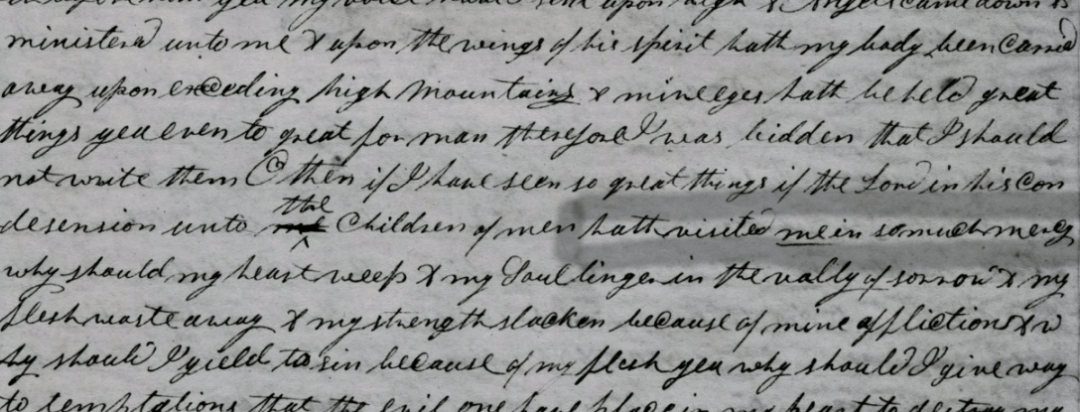 yea my voice have I sent upon high & Angels came down &
ministerd unto me & upon the wings of his spirit hath my body been carried
away upon exceeding high mountains & mine eyes hath beheld great
things yea even to great for man therefore I was bidden that I should
not write them O then if I have seen so great things if the Lord in his con
desension unto me the Children of men hath visited me in so much mercy
why should my heart weep & my Soul linger in the vally of sorrow & my
flesh waste away & my strength slacken because of mine afflictions & w
hy should I yield to sin because of my flesh yea why should I give way
to temptations that the evil one have place in my heart to destroy my